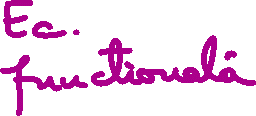 Ec.
funcțională